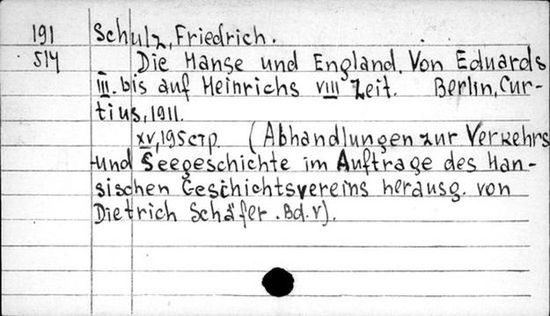 191 Schulz, Friedrich.
514 Die Hanse und England. Von Eduards
III. bis auf Heinrichs VIII Zeit. Berlin, Cur-
tius, 1911.
XV, 195 стр. (Abhandlungen zur Verkehrs
-und Seegeschichte im Auftrage des Han-
sischen Geschichtsvereins herausg. von
Dietrich Schäfer. Bd. V).